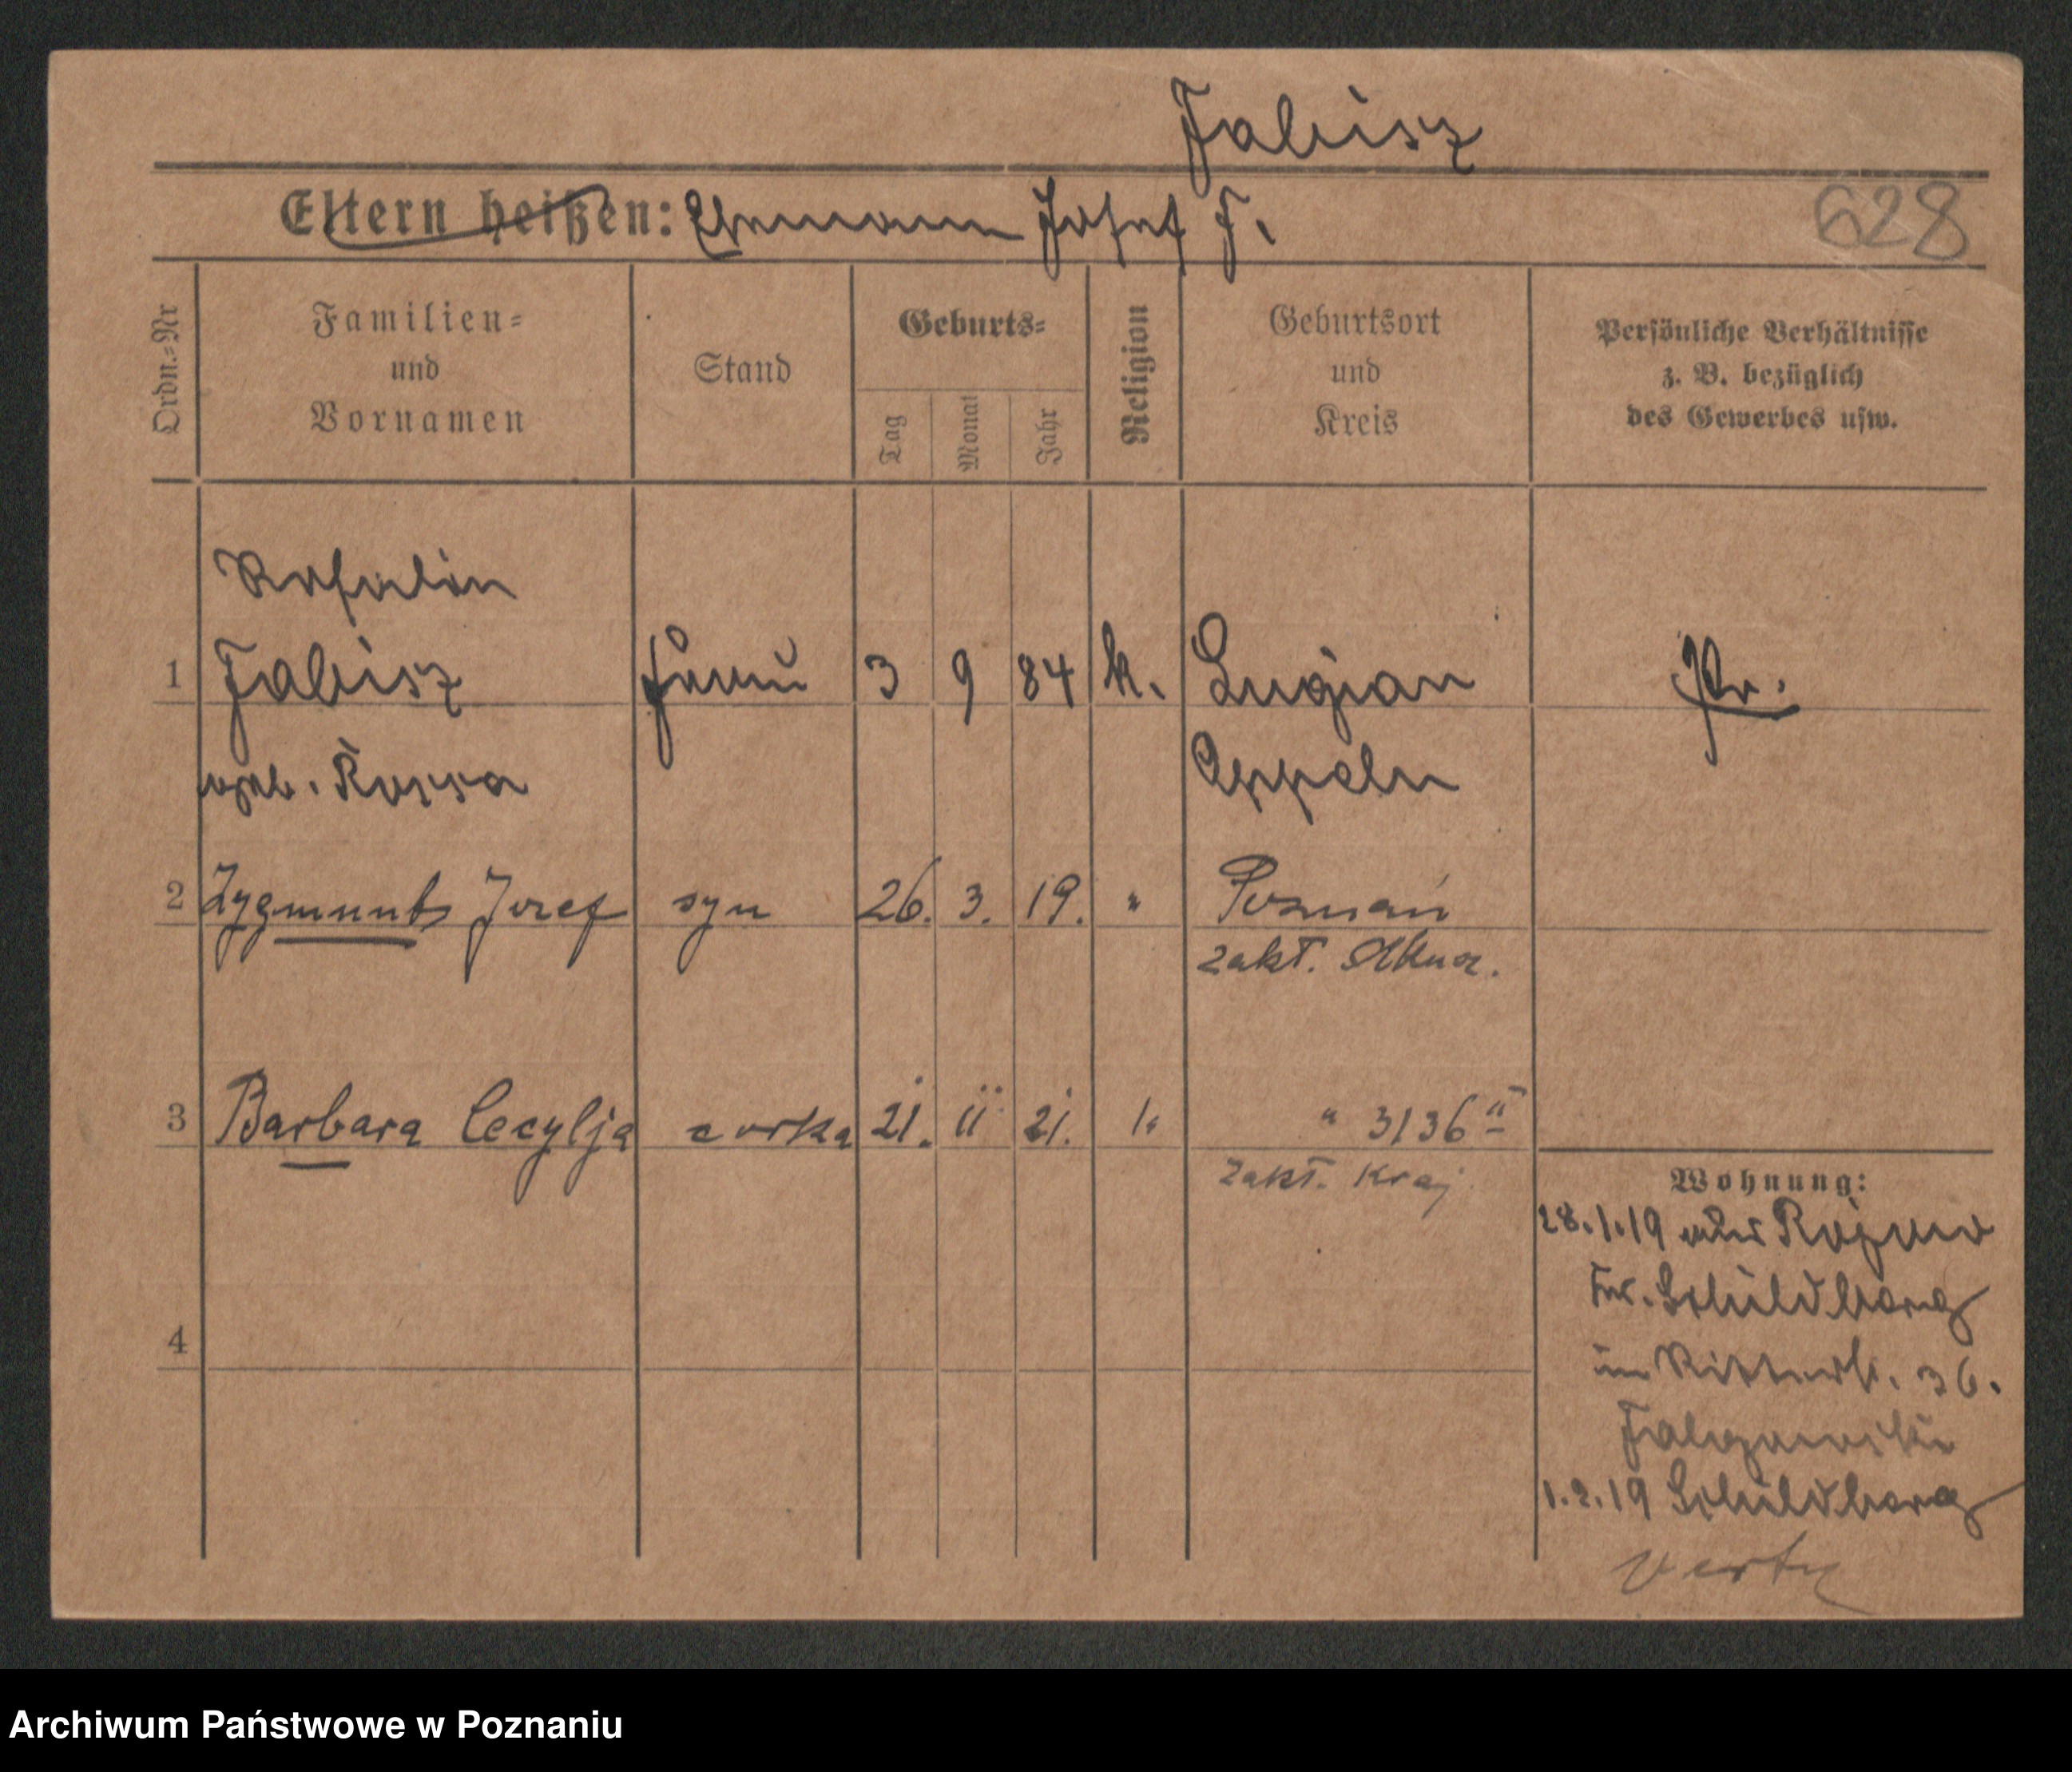 Fabisz
Eltern heißen: Ehemann Josef F.
628
Ordn.=Nr
Familien=
und
Vornamen
Stand
Geburts=
Tag
Monat
Jahr
Religion
Geburtsort
und
Kreis
Persönliche Verhältnisse
z. B. bezüglich
des Gewerbes usw.
Rosalie
1 Fabisz Frau 3 9 84 k. Lugian Pr.
geb. Kossa Oppeln
2 Zygmunt Józef syn 26. 3. 19. " Poznań
zakł.
3 Barbara Cecylja corka 21. 11 21. " " 3136 II
zakł. Kraj
Wohnung:
28.1.19 aus
Kr. Schildberg
in Ritterst. 36.
1.2.19 Schildberg
4
verte
Archiwum Państwowe w Poznaniu